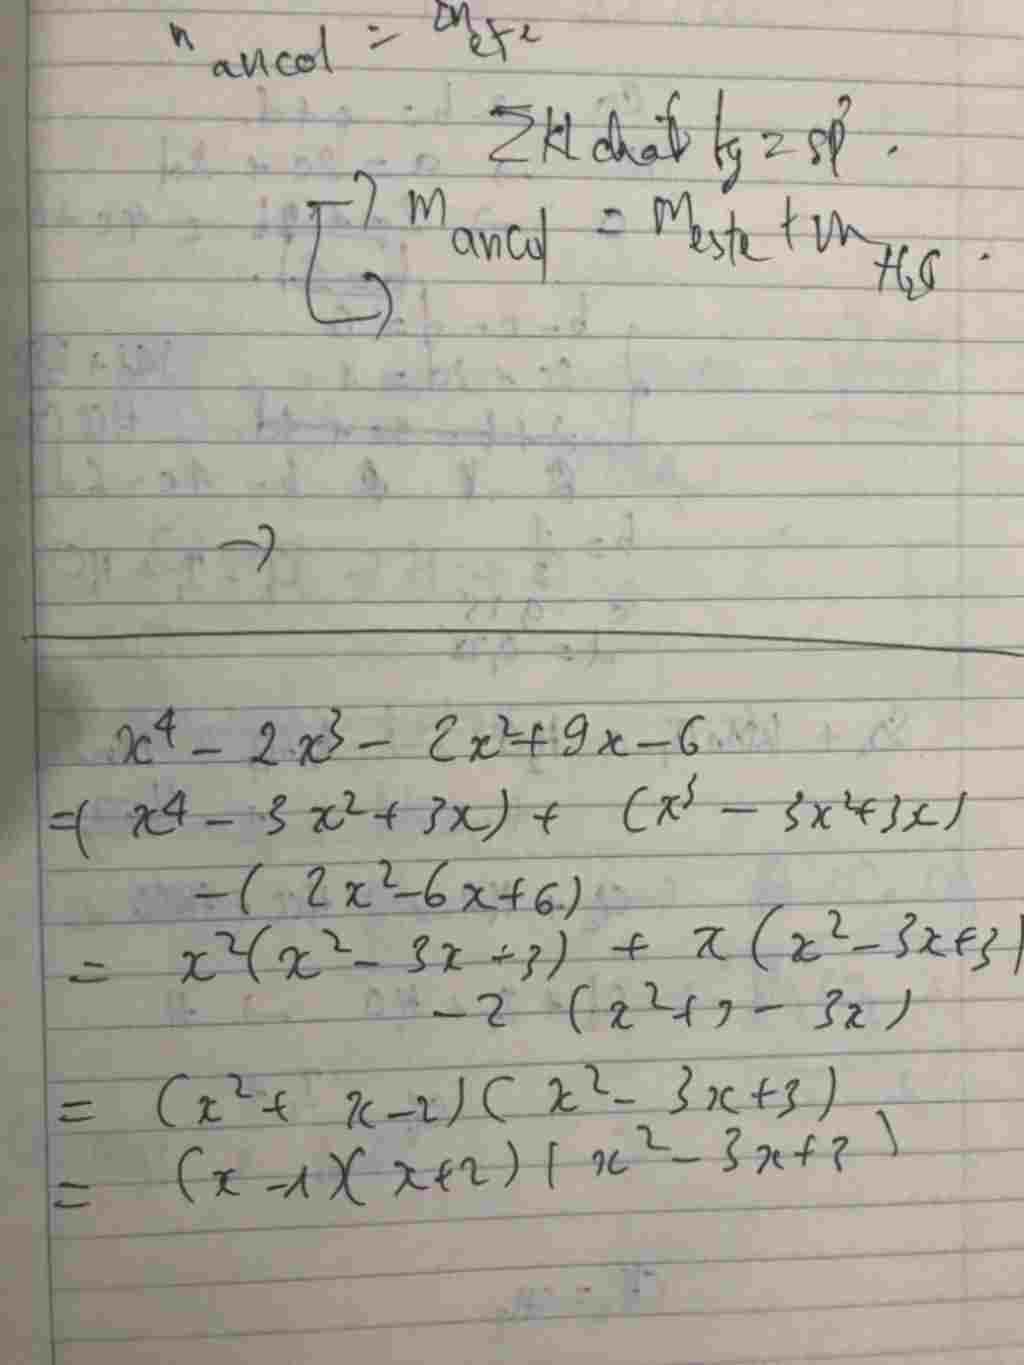 n ancol = 2n ete
ΣKl chất tg = sp
m ancol = m este + m H₂O
→
x⁴ - 2x³ - 2x² + 9x - 6
= ( x⁴ - 3x² + 3x) + (x³ - 3x² + 3x)
- ( 2x² - 6x + 6)
= x²(x² - 3x + 3) + x (x² - 3x + 3)
- 2 (x² + 3 - 3x)
= (x² + x - 2) ( x² - 3x + 3)
= (x - 1)( x + 2) ( x² - 3x + 3 )